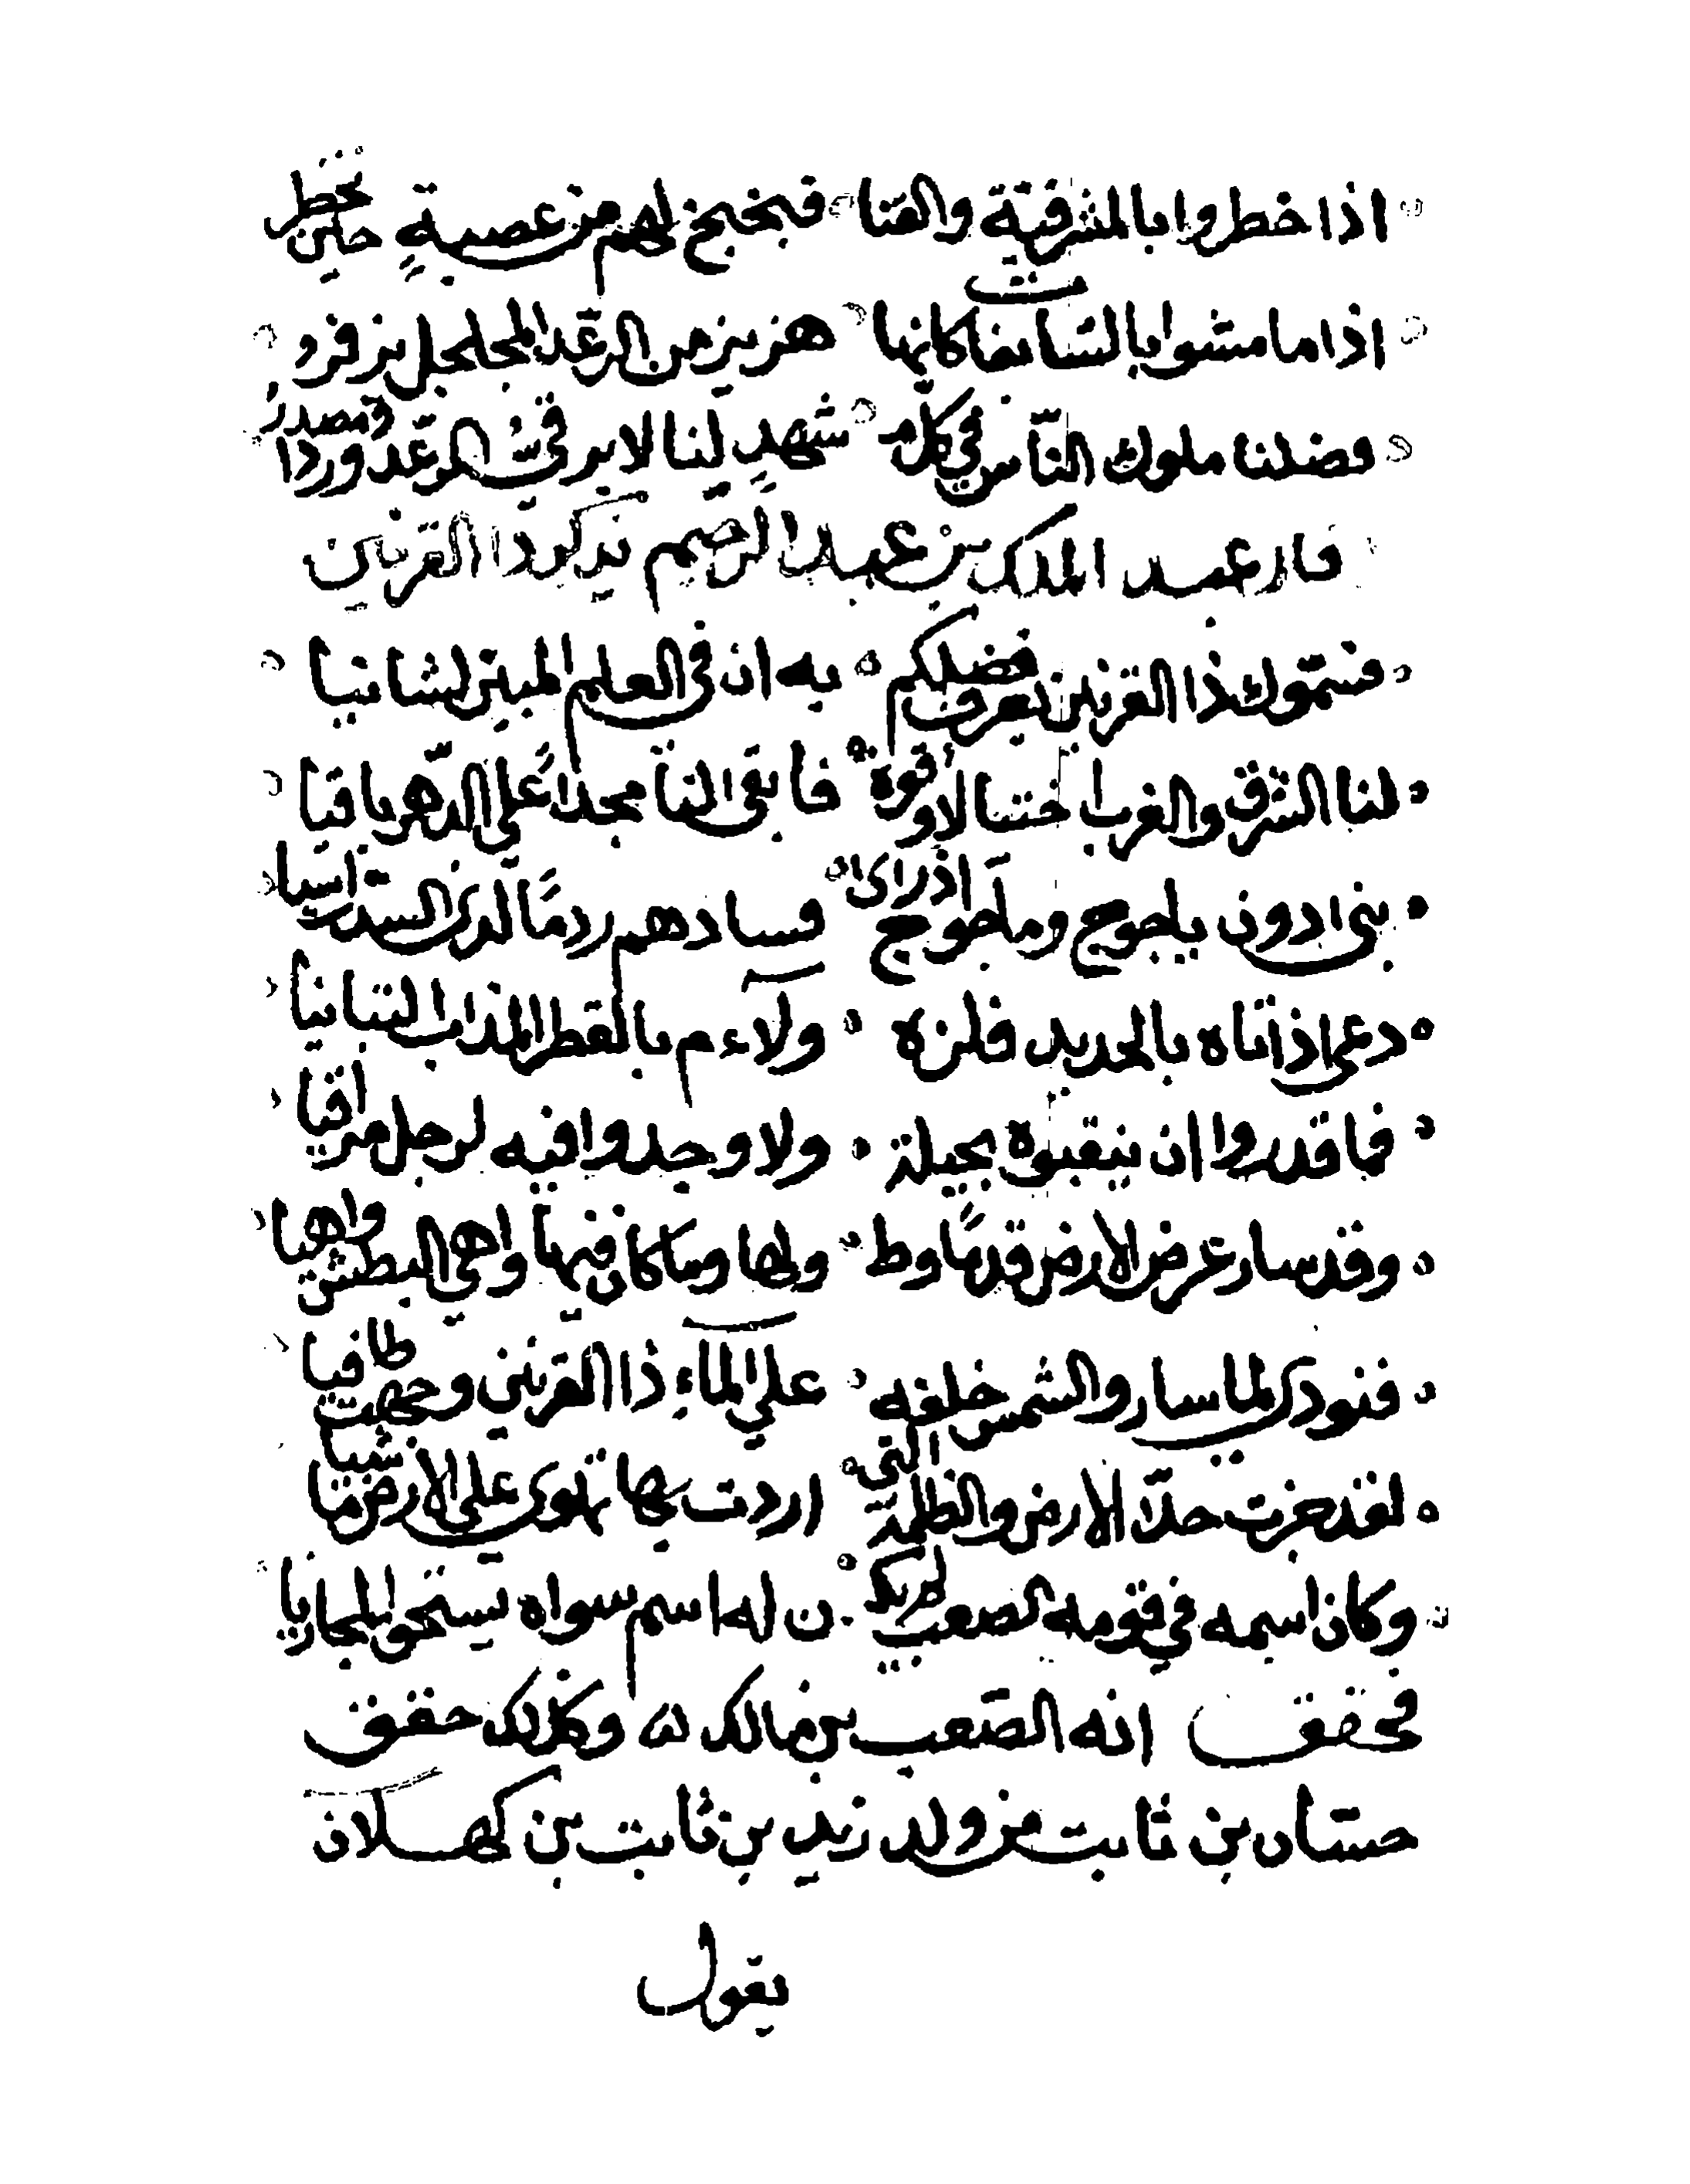 اذا خطروا بالمشرفية والقنا فبخبخ لهم من عصبة حين تخطر
اذا ما مشوا بالسابغات كانها هزيز من الرعد المجلجل يزفر
فضلنا ملوك الناس في كل شهد لنا لا يرقى وردا ومصدر
قال عبد الملك بن عبد الرحيم يذكر ذا القرنين
فنتموك ذا القرنين نعرف فضلكم به ان في العلم المبين لشانيا
لنا الشرق والغرب اختيالا وقوة فابقى لنا مجدا على الدهر باقيا
بنى ادون ياجوج وماجوج اذ راى فسادهم ردما لدى السد
دعى اذ اتاه بالحديد فلزه ولاءم بالقطر المذاب
فما قدروا ان ينقبوه بحيلة ولا وجدوا فيه لرجل مراقيا
وقد سار عرض الارض قدما وط ولها وما كان فيها واهي البطش واهيا
فنودى لما سار والشمس خلفه على الماء ذا القرنين وجهت طافيا
لقد جزت حد الارض والظلمة التي اردت بها تهوى على الارض
وكان اسمه في قومه الصعب لم يك ن له اسم سواه
فحقق انه الصعب بن مالك وكذلك حقق
حسان بن ثابت من ولد زيد بن ثابت بن كهلان
يقول